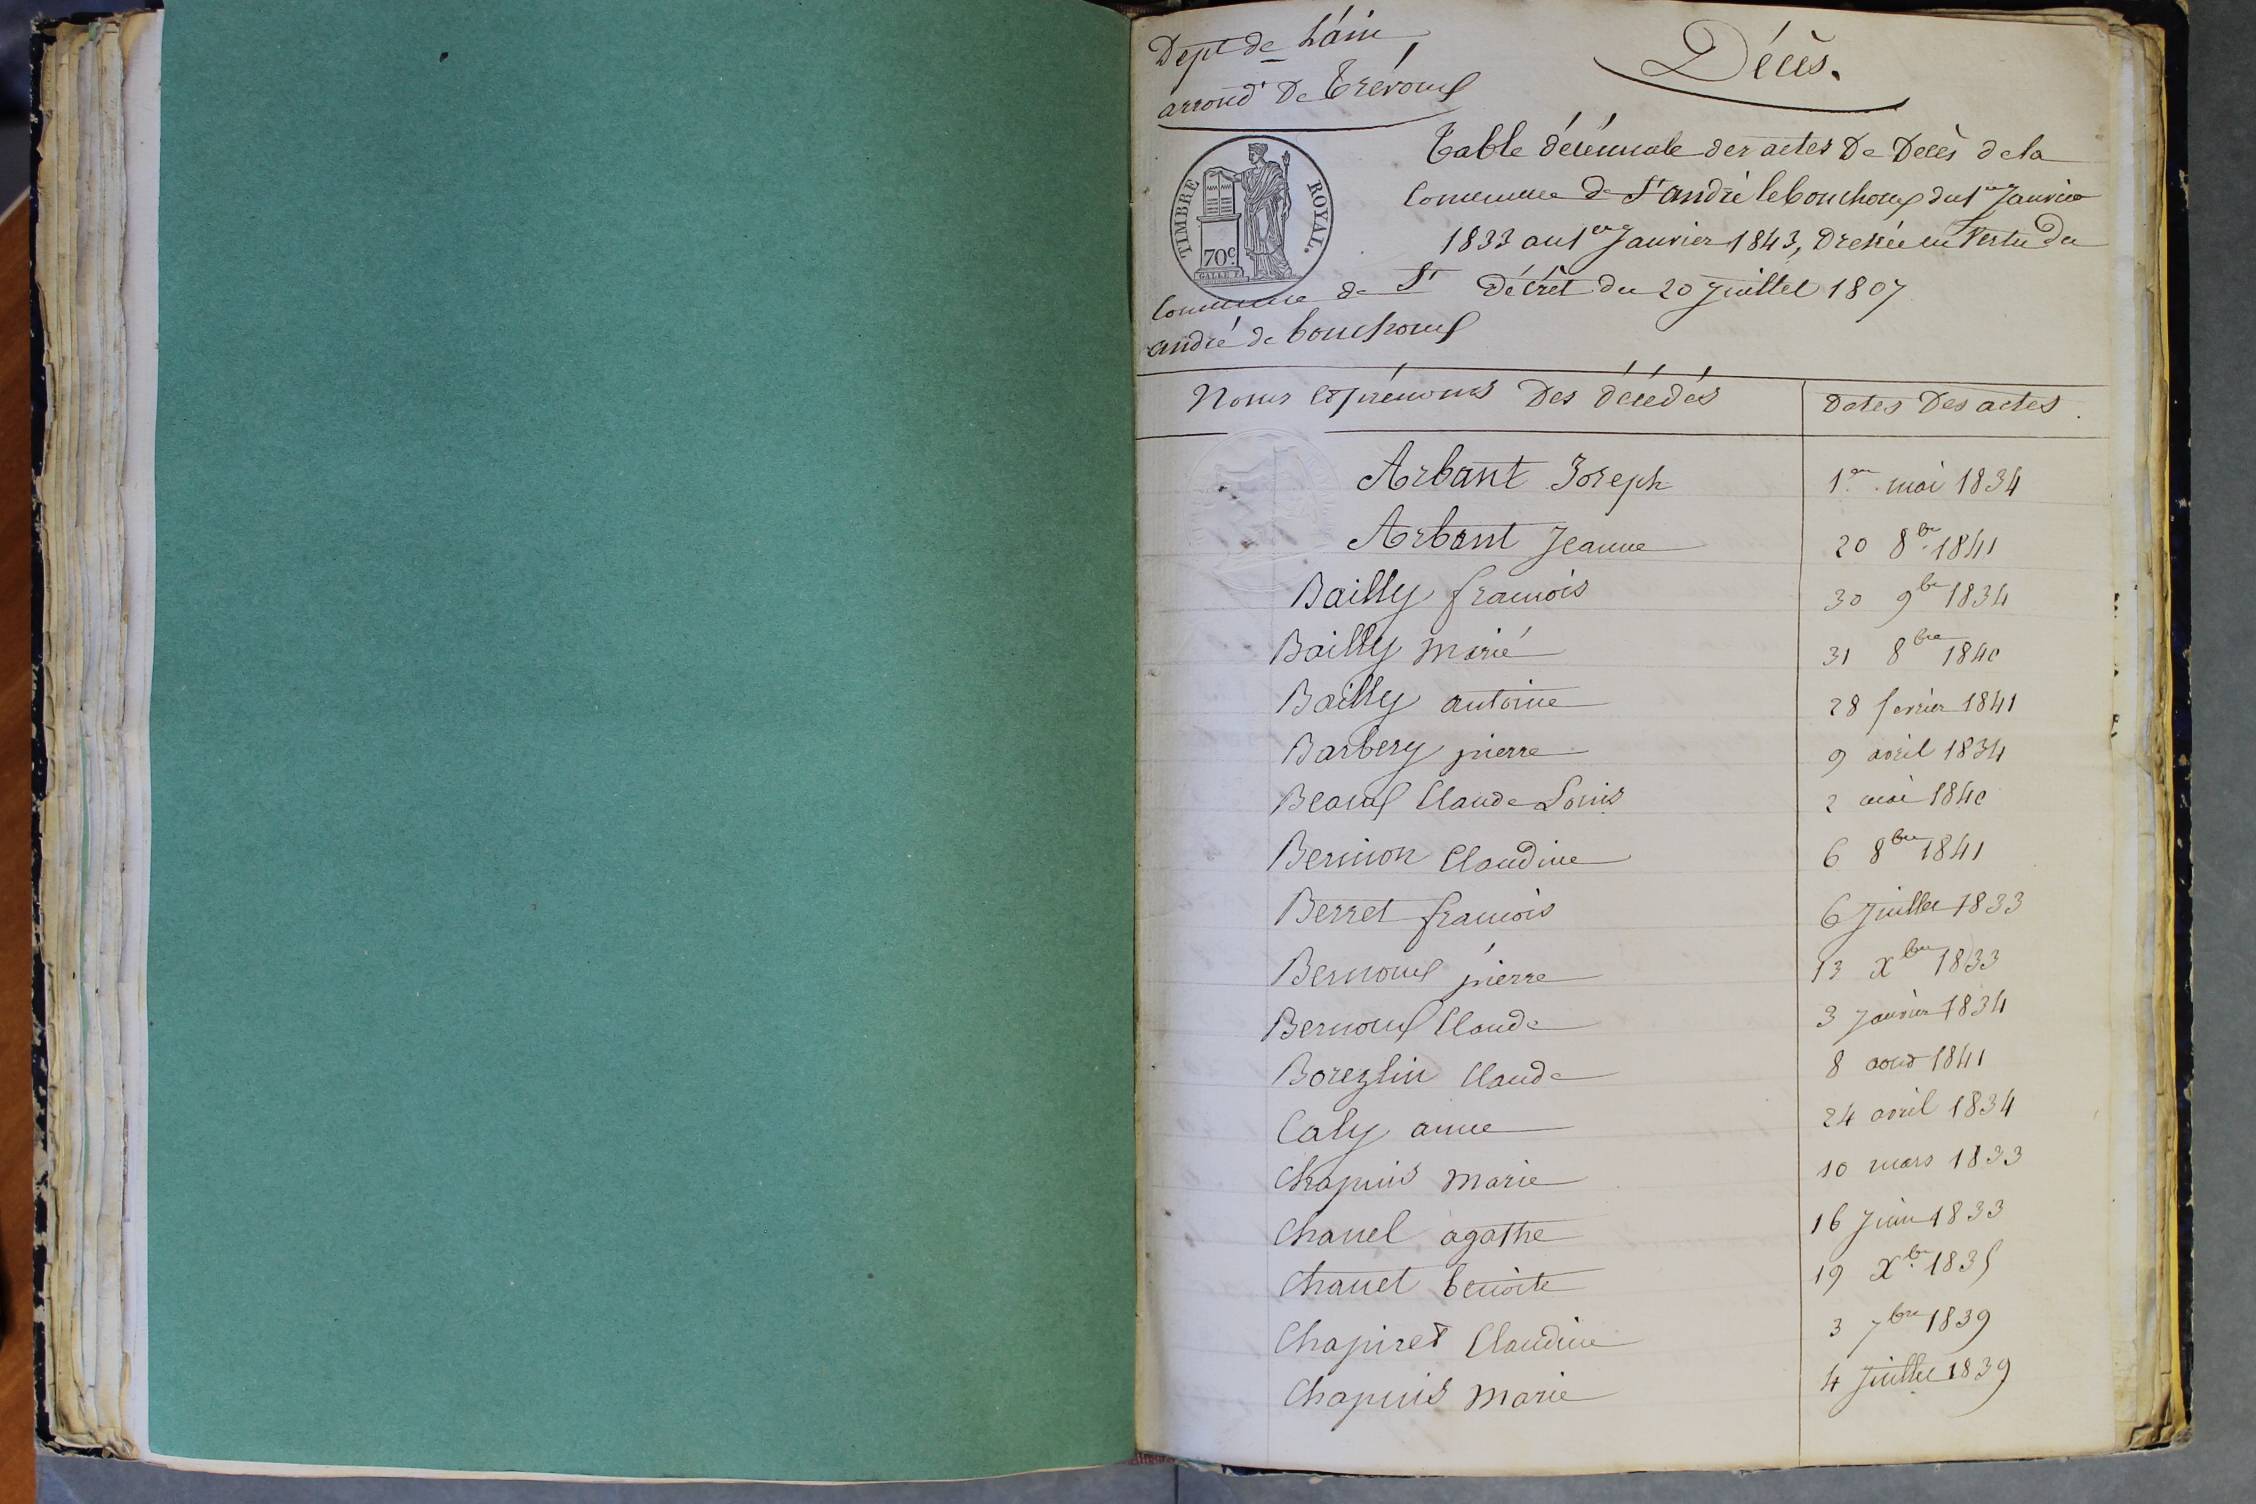 Dept de L'ain
arrond.t De Trévoux
Décès.
Table décennale des actes De Décès de la
Commune de St andré lebouchoux du 1er Janvier
1833 au 1er Janvier 1843, Dressée en Vertu du
Décret du 20 Juillet 1807
TIMBRE ROYAL.
70c.
Commune de St
andré de bouchoux
Noms et prénoms Des décédés
Dates Des actes.
Arbant Joseph 1er mai 1834
Arbant Jeanne 20 8bre 1841
Bailly francois 30 9bre 1834
Bailly Marie 31 8bre 1840
Bailly antoine 28 fevrier 1841
Barbery pierre 9 avril 1834
Beaux Claude Louis 2 mai 1840
Bernion Claudine 6 8bre 1841
Berret francois 6 Juillet 1833
Bernoux pierre 13 Xbre 1833
Bernoux Claude 3 Janvier 1834
Borezlin Claude 8 aout 1841
Caly anne 24 avril 1834
Chapuis Marie 10 mars 1833
Chanel agathe 16 Juin 1833
Chanel benoite 19 Xbre 1835
Chapiret Claudine 3 7bre 1839
Chapuis Marie 4 Juillet 1839